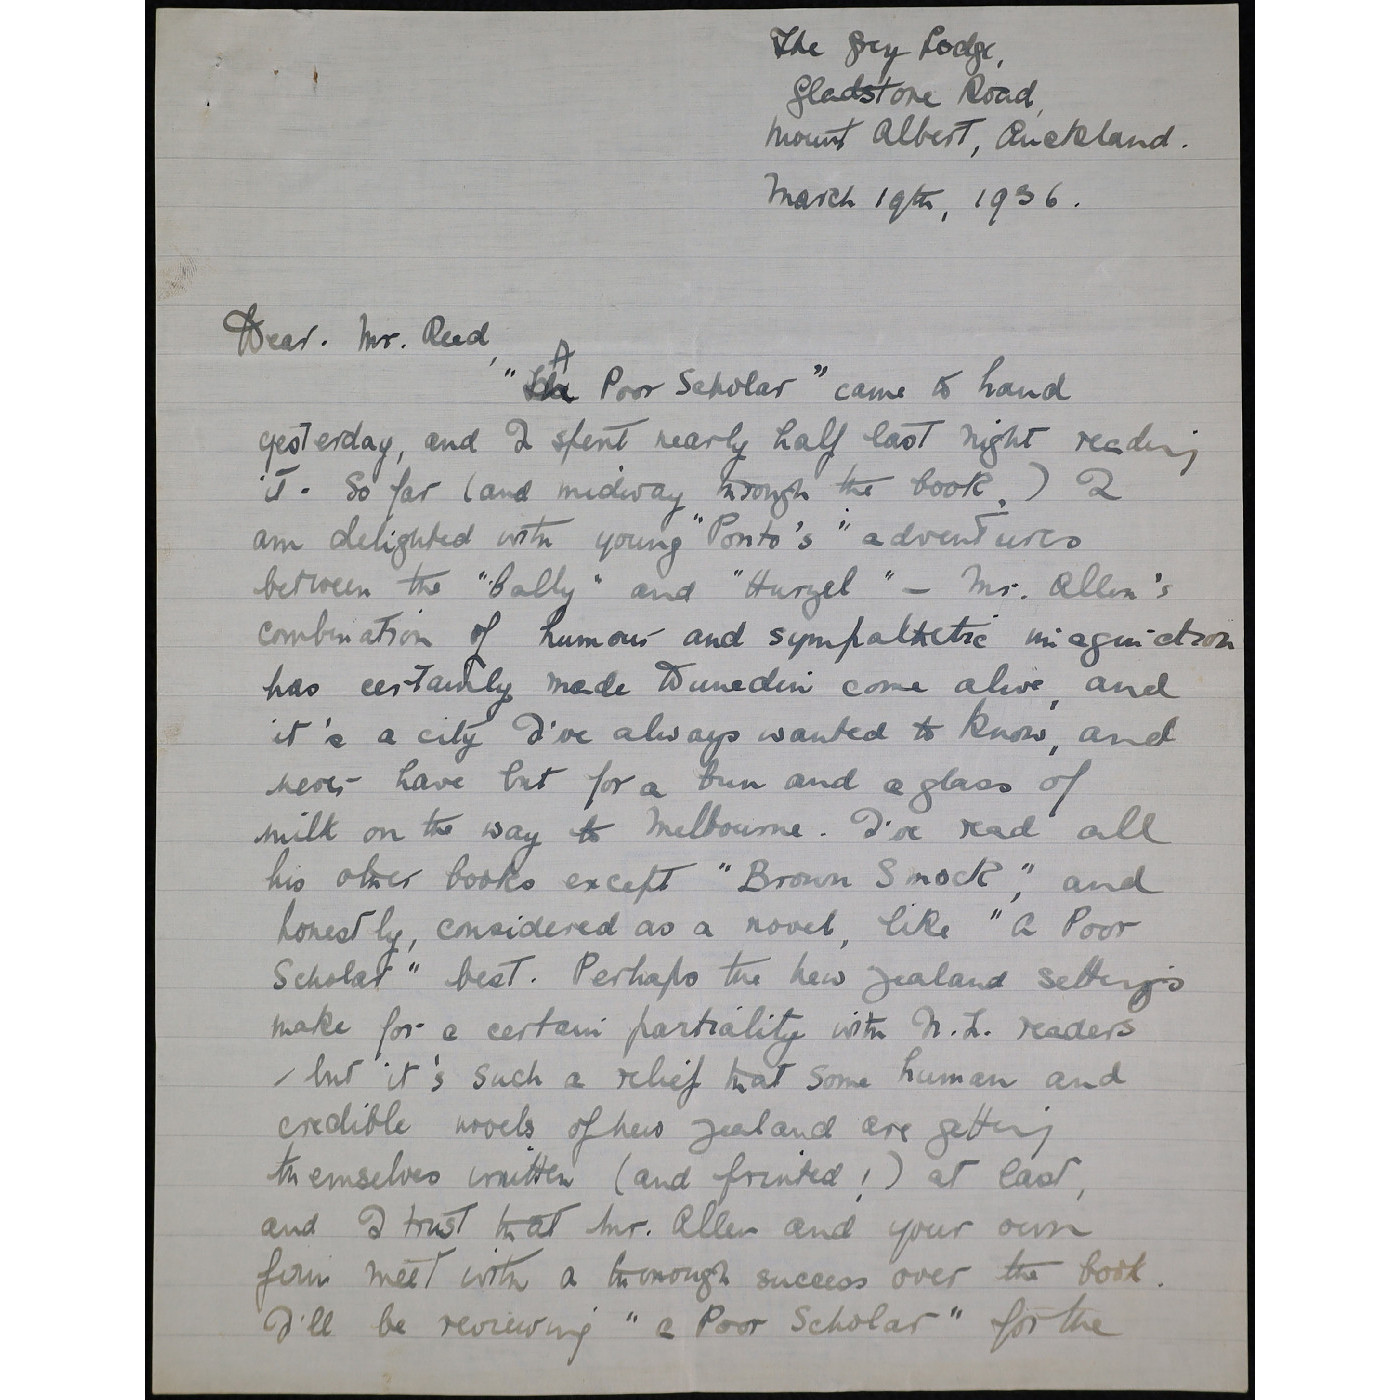 The Grey Lodge,
Gladstone Road,
Mount Albert, Auckland.
March 19th, 1936.
Dear. Mr. Reed,
"A Poor Scholar" came to hand
yesterday, and I spent nearly half last night reading
it. So far (and midway through the book,) I
am delighted with young "Ponto's" adventures
between the "Bally" and "Hurzel" – Mr. Allen's
combination of humour and sympathetic imagination
has certainly made Dunedin come alive, and
it's a city I've always wanted to know, and
never have but for a bun and a glass of
milk on the way to Melbourne. I've read all
his other books except "Brown Smock", and
honestly, considered as a novel, like "A Poor
Scholar" best. Perhaps the New Zealand settings
make for a certain partiality with N.Z. readers
– but it's such a relief that some human and
credible novels of New Zealand are getting
themselves written (and printed!) at last,
and I trust that Mr. Allen and your own
firm meet with a thorough success over the book.
I'll be reviewing "A Poor Scholar" for the